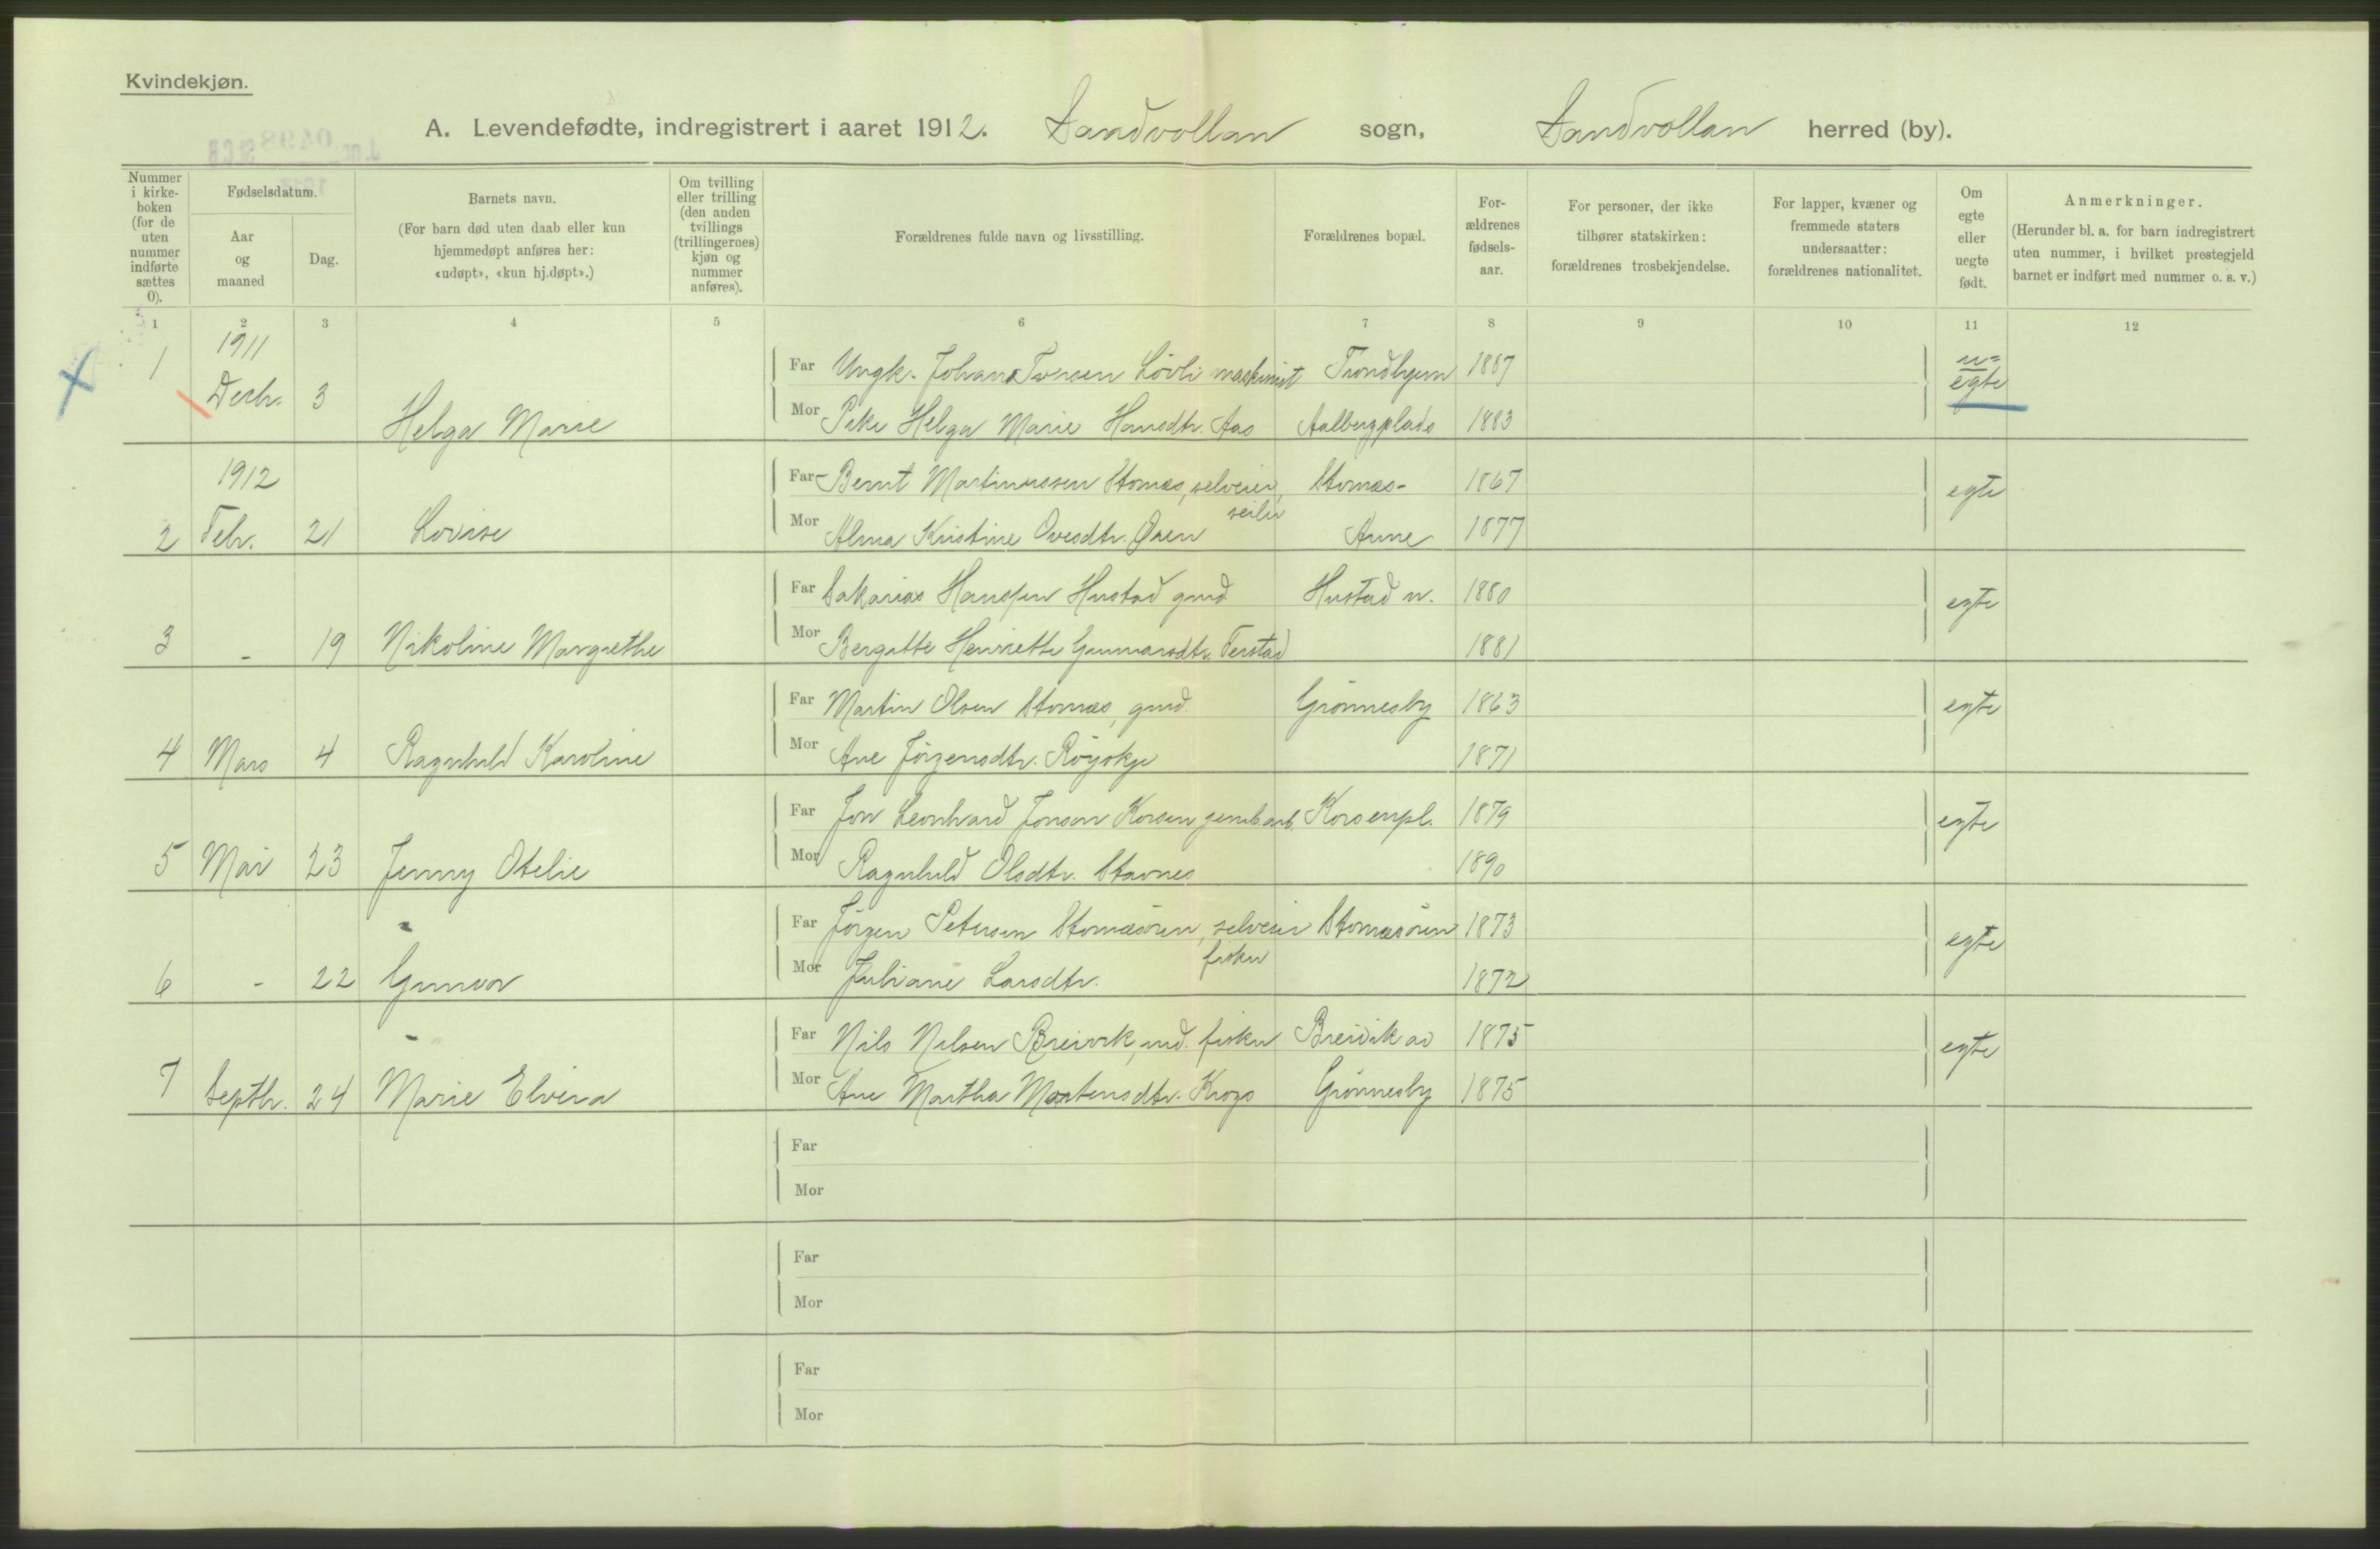 Kvindekjøn.
A. Levendefødte, indregistrert i aaret 1912. Sandvollan sogn, Sandvollan herred (by).
Nummer i kirke-boken (for de uten nummer indførte sættes 0).
Fødselsdatum.
Aar og maaned
Dag.
Barnets navn.
(For barn død uten daab eller kun hjemmedøpt anføres her: «udøpt», «kun hj.døpt».)
Om tvilling eller trilling (den anden tvillings (trillingernes) kjøn og nummer anføres).
Forældrenes fulde navn og livsstilling.
Forældrenes bopæl.
For-ældrenes fødsels-aar.
For personer, der ikke tilhører statskirken: forældrenes trosbekjendelse.
For lapper, kvæner og fremmede staters undersaatter: forældrenes nationalitet.
Om egte eller uegte født.
Anmerkninger.
(Herunder bl. a. for barn indregistrert uten nummer, i hvilket prestegjeld barnet er indført med nummer o. s. v.)
1 2 3 4 5 6 7 8 9 10 11 12
1911
1 Decbr. 3 Helga Marie
Far Ungk. Johan Løvli maskinist Trondhjem 1887 u=egte
Mor Pike Helga Marie Hansdtr. Aas Aalbergplads 1883
1912
2 Febr. 21 Lovise
Far Bernt Martinussen Stornæs, selveier, seiler Stornæs- 1867 egte
Mor Alma Kristine Ovesdtr. Øien Aune 1877
3 - 19 Nikoline Margrethe
Far Sakarias Hanssen Hustad gmd Hustad n. 1880 egte
Mor Bergitte Henriette Gunnarsdtr. Ferstad 1881
4 Mars 4 Ragnhild Karoline
Far Martin Olsen Stornæs, gmd. Grønnesby 1863 egte
Mor Ane Jørgensdtr. Røiskje 1871
5 Mai 23 Jenny Otelie
Far Jon Leonhard Jonsen Korsen jernb.arb. Korsenpl. 1879 egte
Mor Ragnhild Olsdtr. Stavnes 1890
6 - 22 Gunvor
Far Jørgen Petersen Stornæsøren, selveier fisker Stornæsøren 1873 egte
Mor Juliane Larsdtr. 1872
7 Septbr. 24 Marie Elvina
Far Nils Nilsen Breivik, ind. fisker Breivik av 1875 egte
Mor Ane Martha Mortensdtr. Krogs Grønnesby 1875
Far
Mor
Far
Mor
Far
Mor